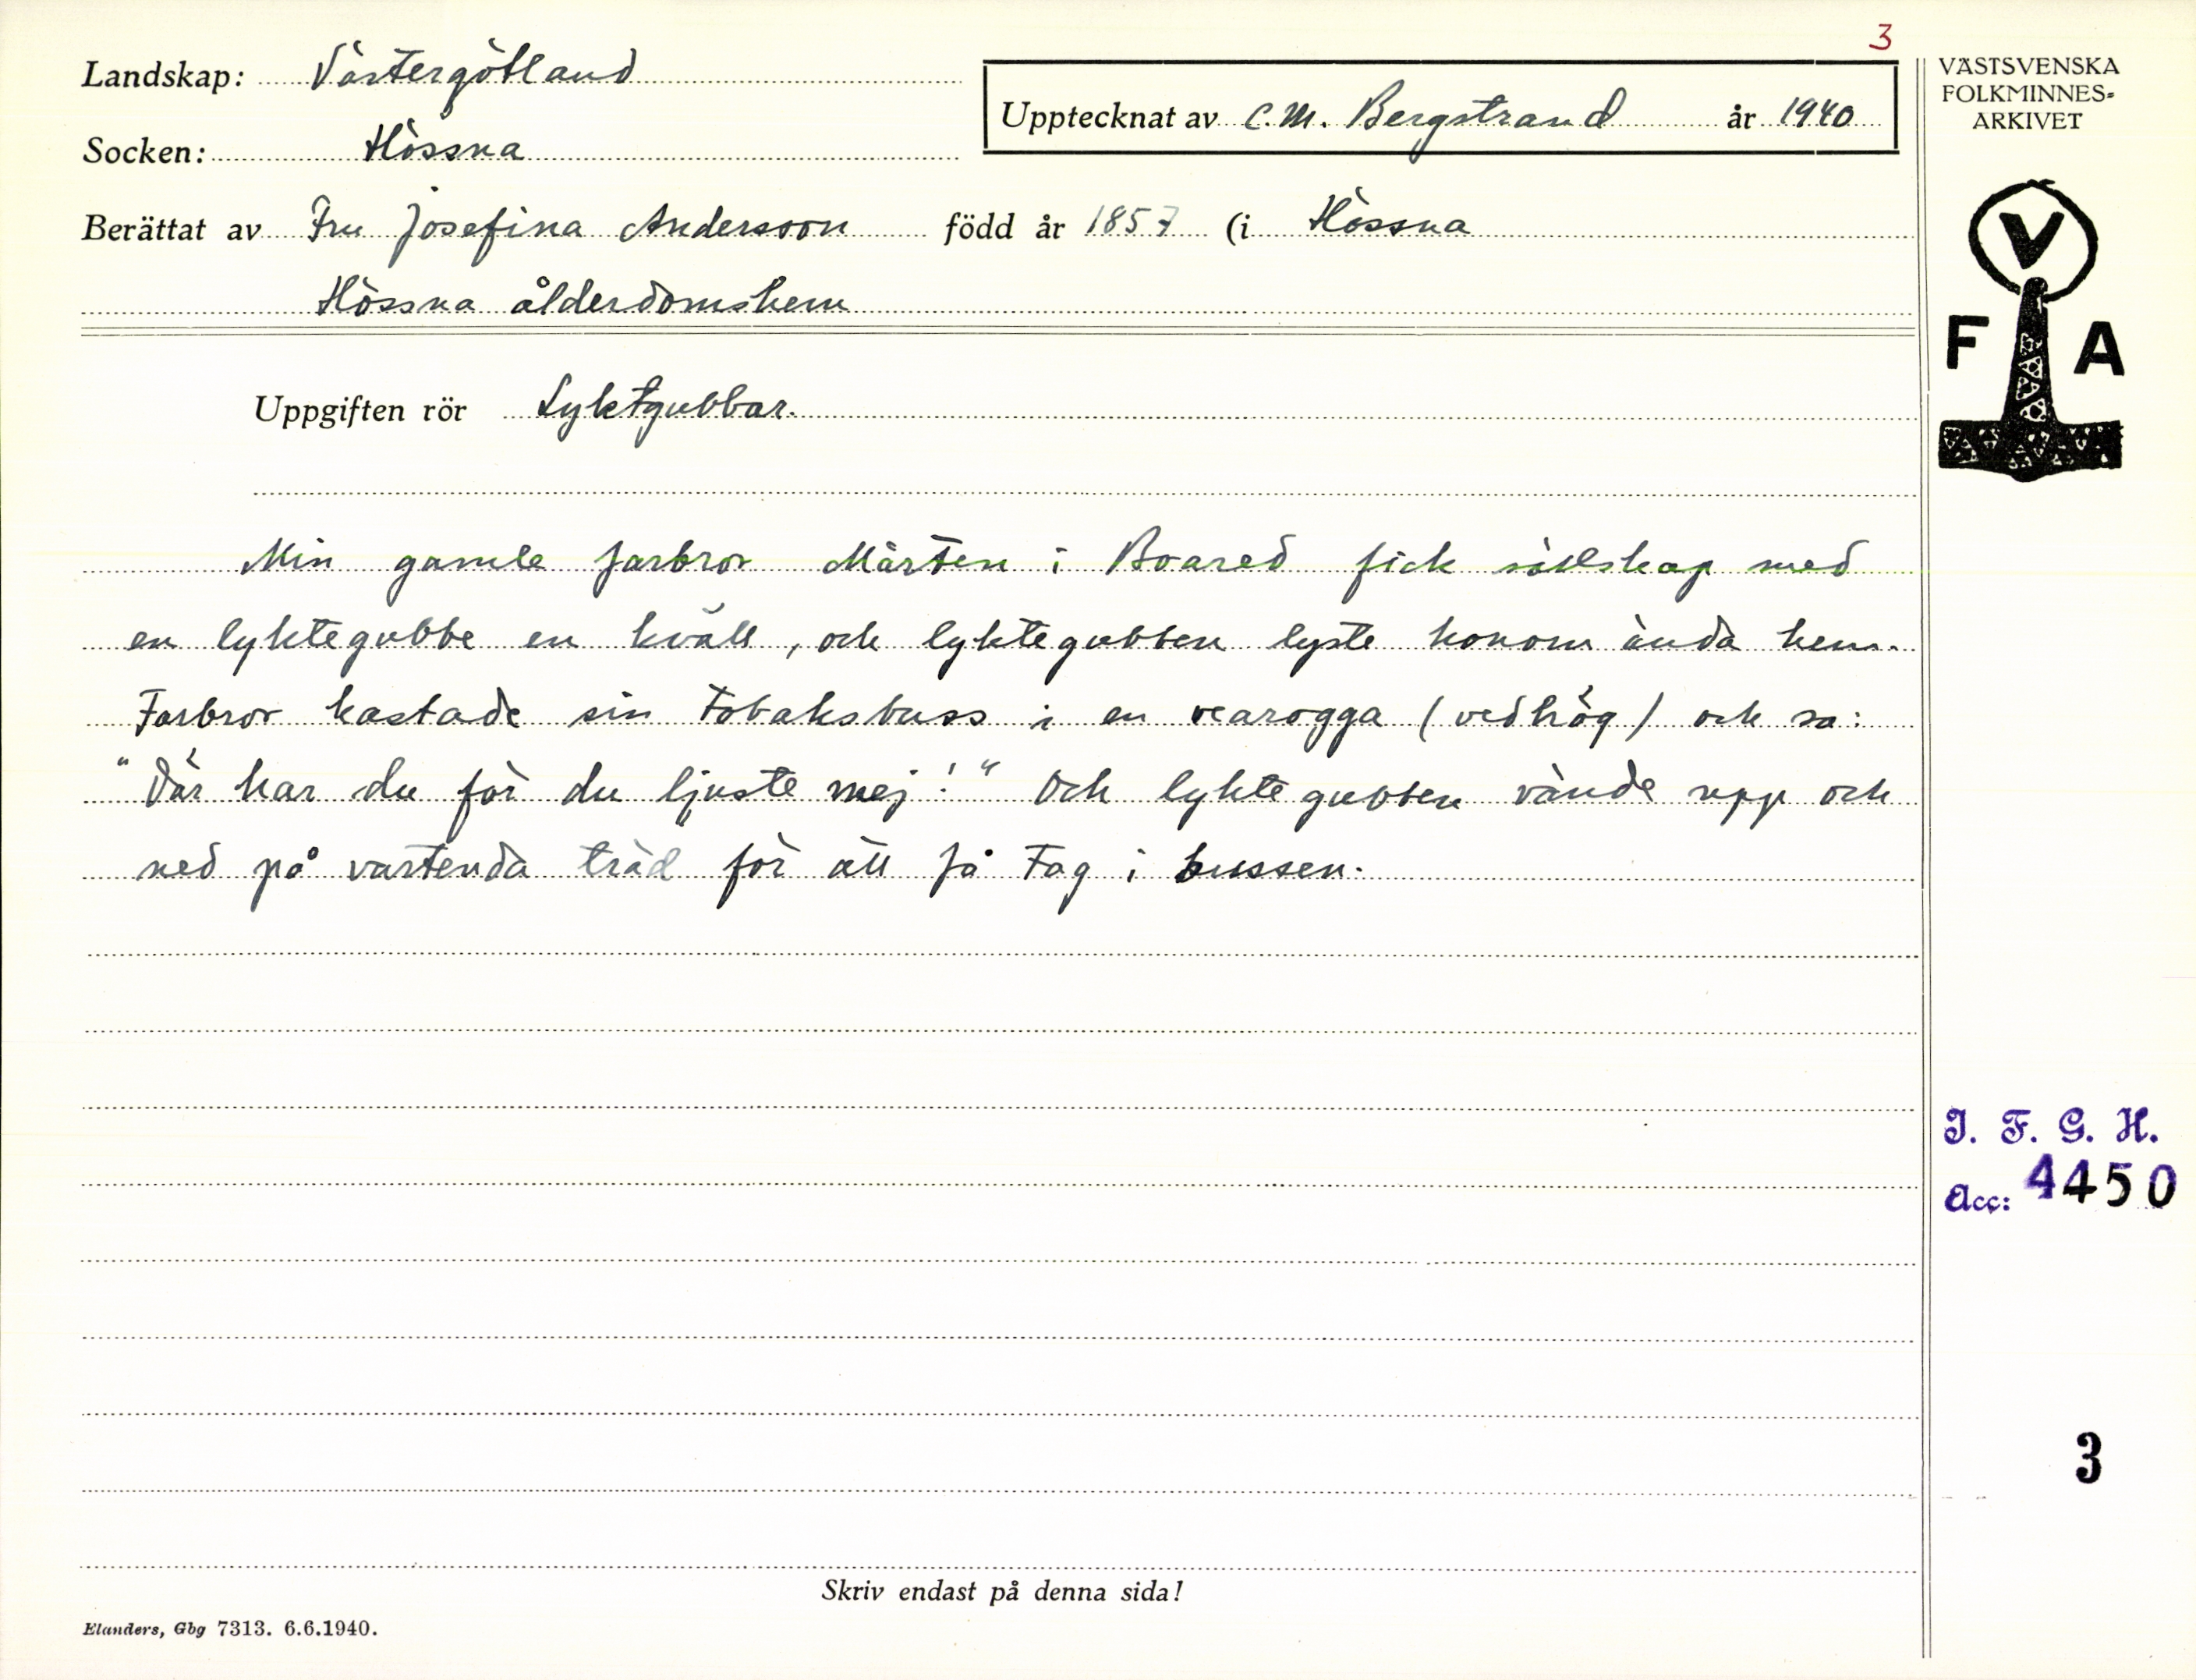 3
Landskap: Västergötland
Upptecknat av C. M. Bergstrand år 1940
VÄSTSVENSKA
FOLKMINNES-
ARKIVET
Socken: Hössna
Berättat av Fru Josefina Andersson född år 1857 (i Hössna
Hössna ålderdomshem
V
F A
Uppgiften rör Lyktgubbar.
Min gamle farbror Mårten i Boared fick sällskap med
en lyktegubbe en kväll, och lyktegubben lyste honom ända hem.
Farbror kastade sin tobaksbuss i en vearogga (vedhög) och sa:
"Där har du för du ljuste mej!" Och lyktegubben vände upp och
ned på vartenda träd för att få tag i bussen.
I. F. G. H.
Acc: 4450
3
Skriv endast på denna sida!
Elanders, Gbg 7313. 6.6.1940.